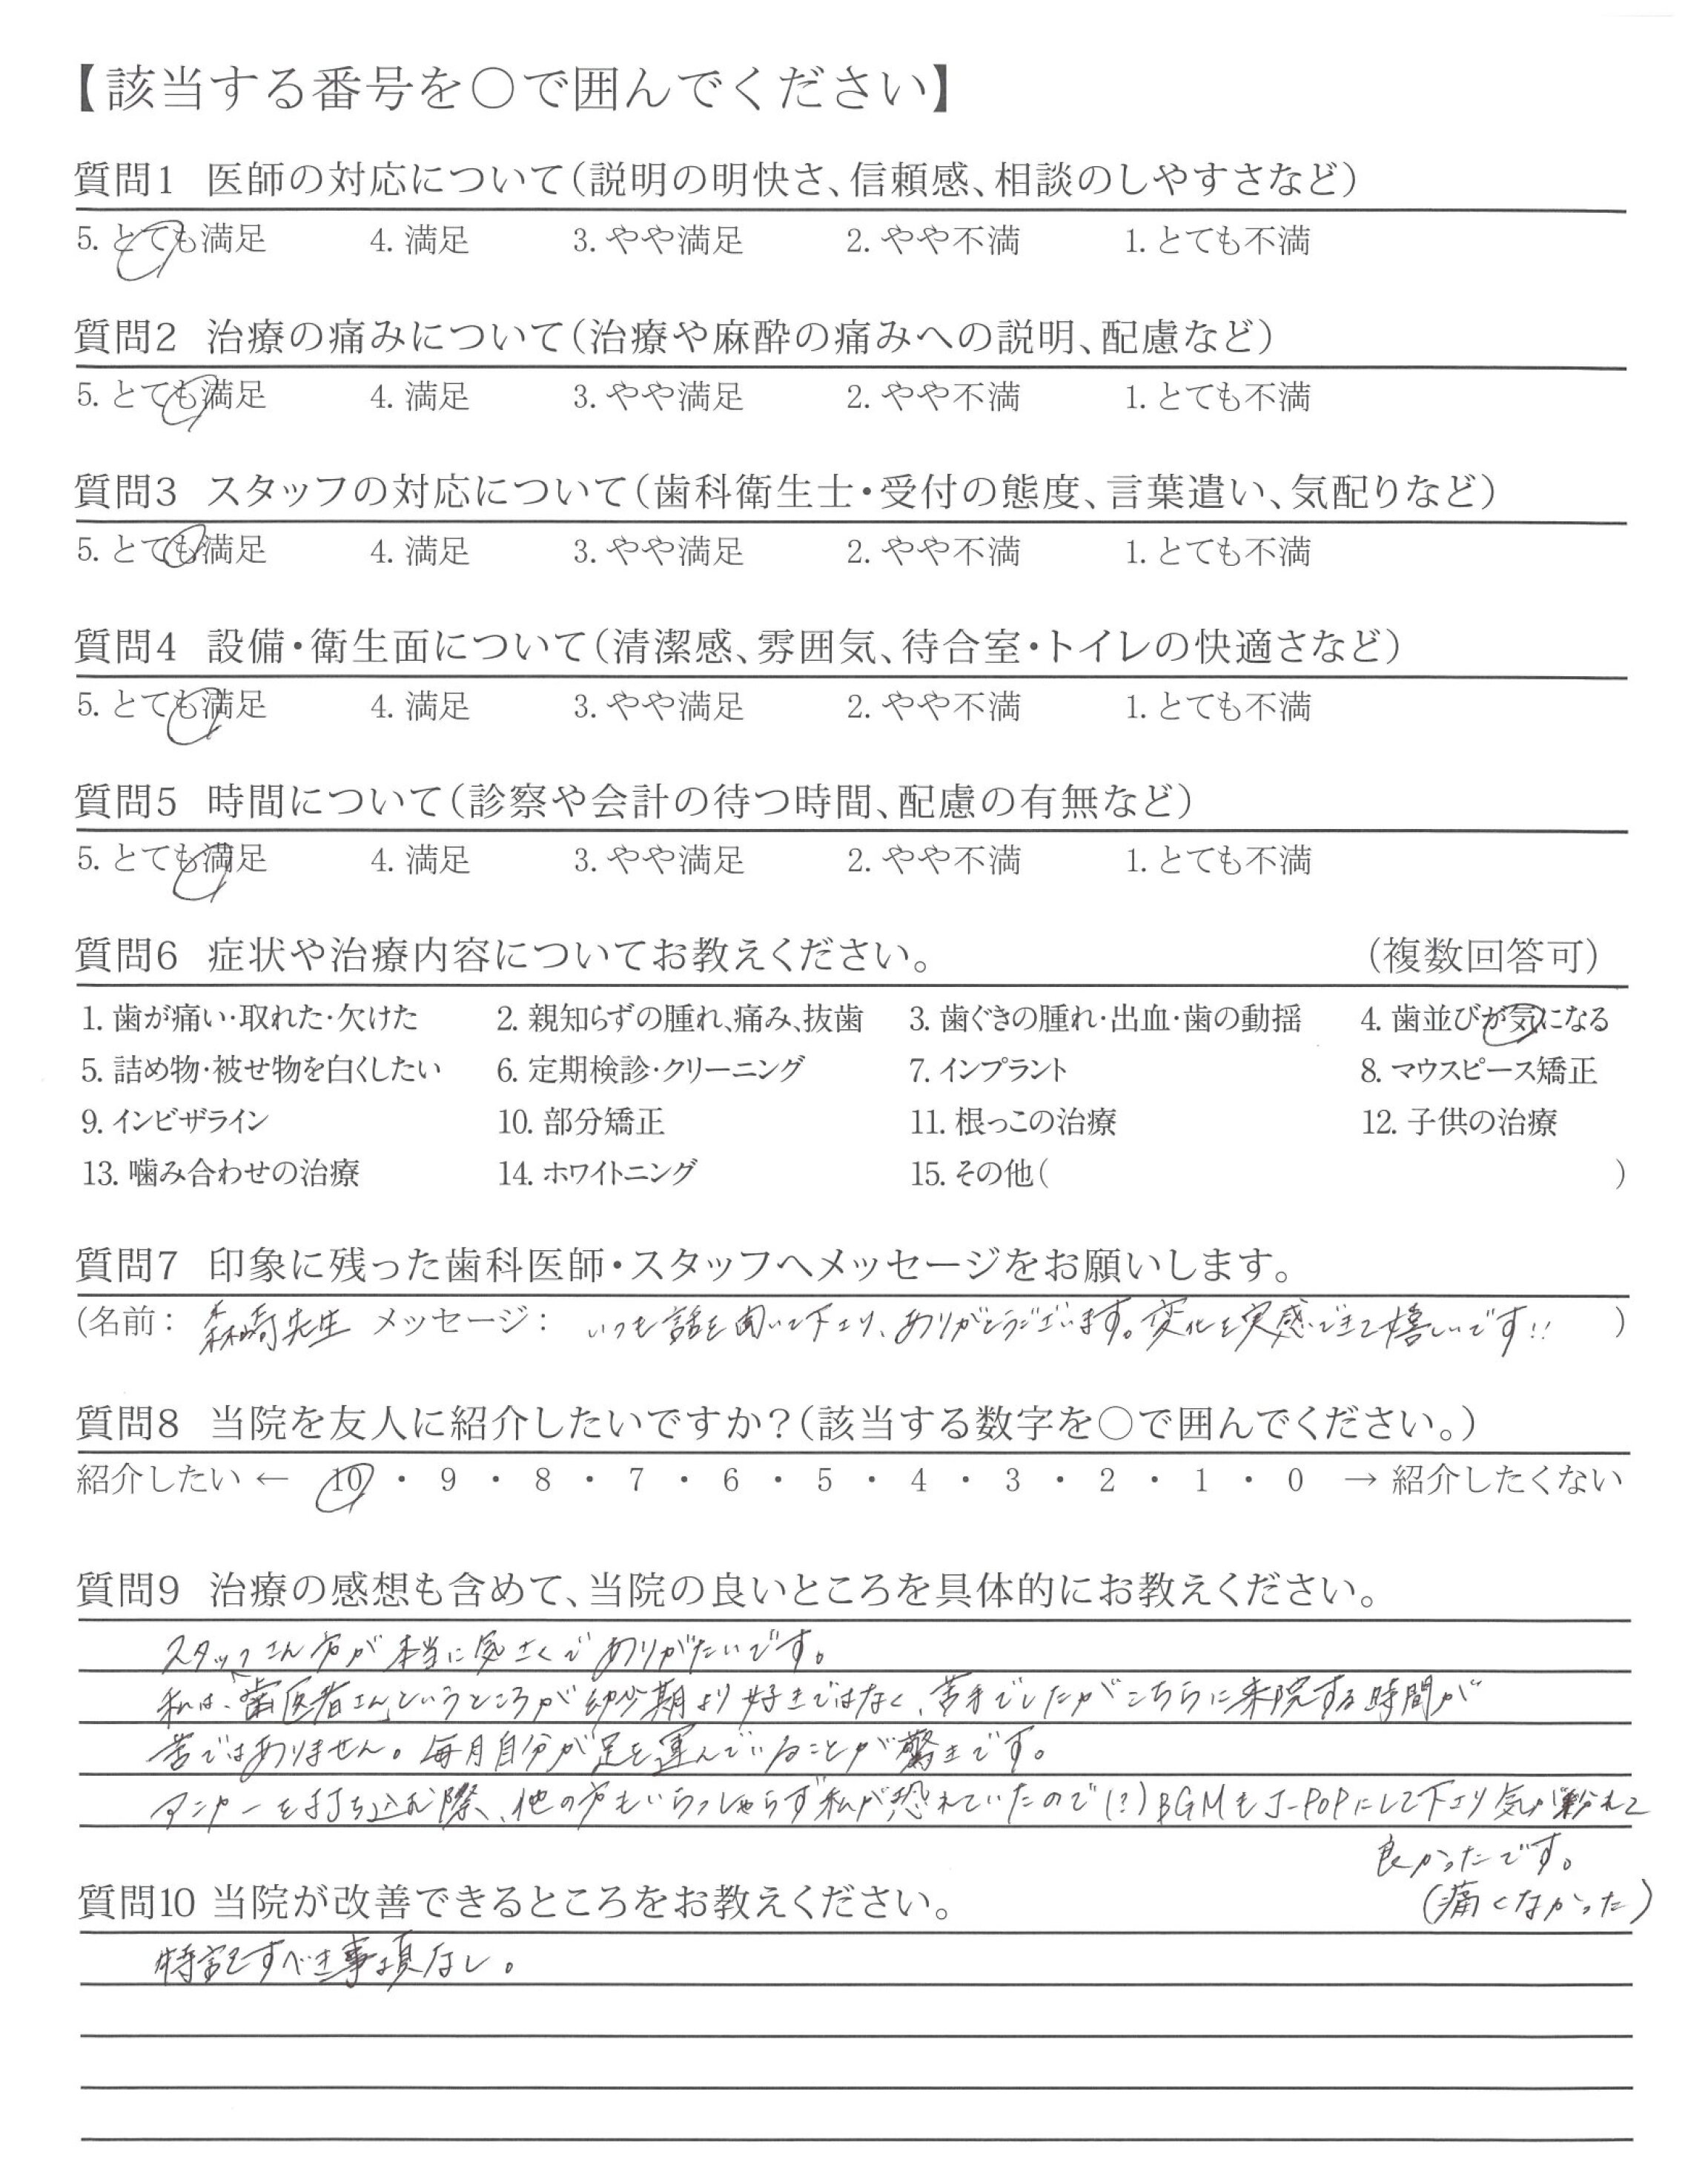 【該当する番号を○で囲んでください】
質問1 医師の対応について(説明の明快さ、信頼感、相談のしやすさなど)
5. とても満足 4. 満足 3. やや満足 2. やや不満 1. とても不満
質問2 治療の痛みについて(治療や麻酔の痛みへの説明、配慮など)
5. とても満足 4. 満足 3. やや満足 2. やや不満 1. とても不満
質問3 スタッフの対応について(歯科衛生士・受付の態度、言葉遣い、気配りなど)
5. とても満足 4. 満足 3. やや満足 2. やや不満 1. とても不満
質問4 設備・衛生面について(清潔感、雰囲気、待合室・トイレの快適さなど)
5. とても満足 4. 満足 3. やや満足 2. やや不満 1. とても不満
質問5 時間について(診察や会計の待つ時間、配慮の有無など)
5. とても満足 4. 満足 3. やや満足 2. やや不満 1. とても不満
質問6 症状や治療内容についてお教えください。 (複数回答可)
1. 歯が痛い・取れた・欠けた 2. 親知らずの腫れ、痛み、抜歯 3. 歯ぐきの腫れ・出血・歯の動揺 4. 歯並びが気になる
5. 詰め物・被せ物を白くしたい 6. 定期検診・クリーニング 7. インプラント 8. マウスピース矯正
9. インビザライン 10. 部分矯正 11. 根っこの治療 12. 子供の治療
13. 噛み合わせの治療 14. ホワイトニング 15. その他( )
質問7 印象に残った歯科医師・スタッフへメッセージをお願いします。
(名前: 森崎先生 メッセージ: いつも話を聞いて下さり、ありがとうございます。変化を実感できて嬉しいです!! )
質問8 当院を友人に紹介したいですか?(該当する数字を○で囲んでください。)
紹介したい ← 10 ・ 9 ・ 8 ・ 7 ・ 6 ・ 5 ・ 4 ・ 3 ・ 2 ・ 1 ・ 0 → 紹介したくない
質問9 治療の感想も含めて、当院の良いところを具体的にお教えください。
スタッフさん方が本当に気さくでありがたいです。
私は、歯医者さんというところが幼少期より好きではなく、苦手でしたがこちらに来院する時間が
苦ではありません。毎月自分が足を運んでいることが驚きです。
アンカーを打ち込む際、他の方もいらっしゃらず私が恐れていたので(?)BGMもJ-POPにして下さり気が紛れて
良かったです。
(痛くなかった)
質問10 当院が改善できるところをお教えください。
特記すべき事項なし。